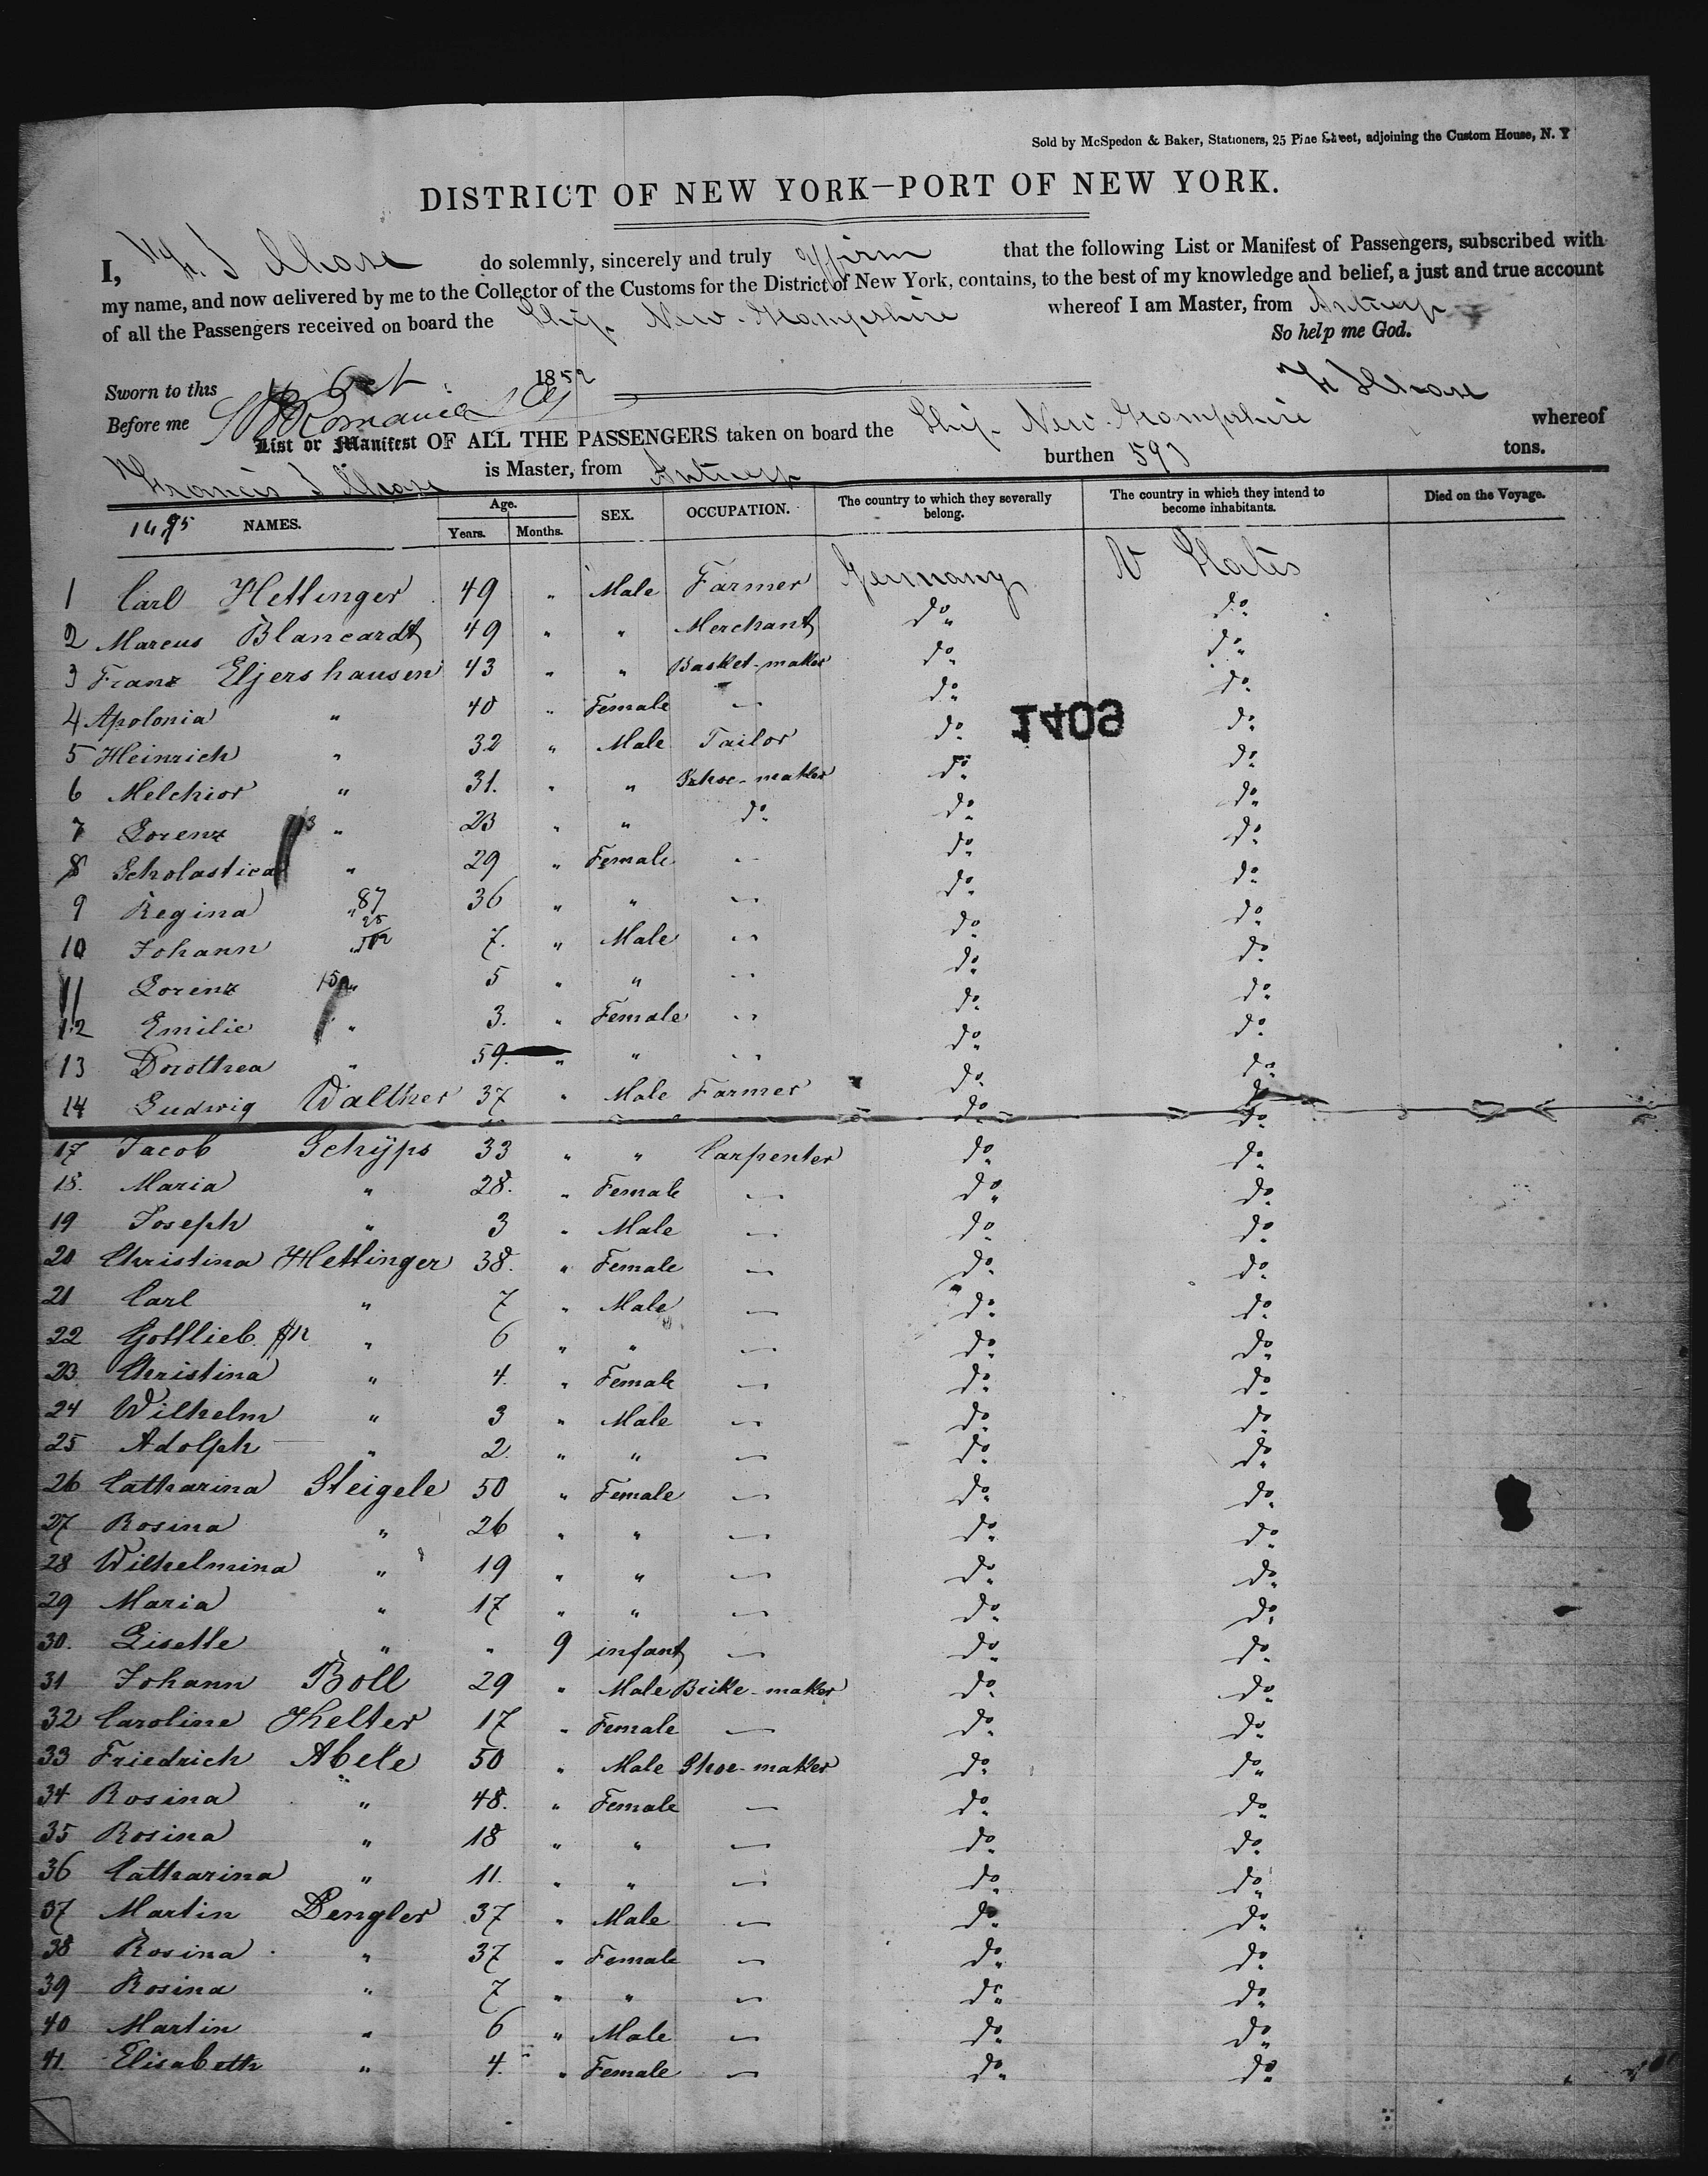 Sold by McSpedon & Baker, Stationers, 25 Pine Street, adjoining the Custom House, N. Y
DISTRICT OF NEW YORK—PORT OF NEW YORK.
I, F. S Chase do solemnly, sincerely and truly affirm that the following List or Manifest of Passengers, subscribed with
my name, and now delivered by me to the Collector of the Customs for the District of New York, contains, to the best of my knowledge and belief, a just and true account
of all the Passengers received on board the Ship New-Hampshire whereof I am Master, from Antwerp
So help me God.
Sworn to this Oct 1852
Before me
F S Chase
List or Manifest OF ALL THE PASSENGERS taken on board the Ship New-Hampshire whereof
Francis S Chase is Master, from Antwerp burthen 593 tons.
NAMES. Age. Years. Months. SEX. OCCUPATION. The country to which they severally belong. The country in which they intend to become inhabitants. Died on the Voyage.
1495
1 Carl Hettinger 49 " Male Farmer Germany U States
2 Marcus Blancardt 49 " " Merchant do do
3 Franz Eljershausen 43 " " Basket-maker do do
4 Apolonia " 40 " Female — do do
1409
5 Heinrich " 32 " Male Tailor do do
6 Melchior " 31. " " Schoe-maker do do
7 Lorenz " 23 " " do do do
8 Scholastica " 29 " Female — do do
9 Regina " 87 36 " " — do do
10 Johann 7. " Male — do do
11 Lorenz " 5 " " — do do
12 Emilie " 3. " Female — do do
13 Dorothea " 59. " " — do do
14 Ludwig Walther 37 " Male Farmer do do
17 Jacob Schÿps 33 " " Carpenter do do
18. Maria " 28. " Female — do do
19 Joseph " 3 " Male — do do
20 Christina Hettinger 38. " Female — do do
21 Carl " 7 " Male — do do
22 Gottlieb " 6 " " — do do
23 Christina " 4. " Female — do do
24 Wilhelm " 3 " Male — do do
25 Adolph " 2. " " — do do
26 Catharina Steigele 50 " Female — do do
27 Rosina " 26 " " — do do
28 Wilhelmina " 19 " " — do do
29 Maria " 17 " " — do do
30. Lisette " " 9 infant — do do
31 Johann Boll 29 " Male Brike-maker do do
32 Caroline Helter 17 " Female — do do
33 Friedrich Abele 50 " Male Shoe-maker do do
34 Rosina " 48. " Female — do do
35 Rosina " 18 " " — do do
36 Catharina " 11. " " — do do
37 Martin Dengler 37 " Male — do do
38 Rosina " 37 " Female — do do
39 Rosina " 7 " " — do do
40 Martin " 6 " Male — do do
41. Elisabeth " 4. " Female — do do